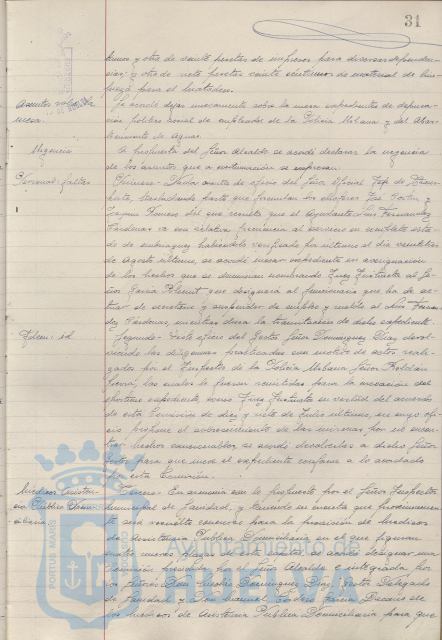 31
timos y otra de veinte pesetas de impresos para diversas dependen-
cias; y otra de siete pesetas veinte céntimos de material de lim-
pieza para el Matadero.
Asuntos sobre la
mesa.
Se acordó dejar nuevamente sobre la mesa expedientes de depura-
ción político social de empleados de la Policía Urbana y del Abas-
tecimiento de Aguas.
Urgencia
A propuesta del Señor Alcalde se acordó declarar la urgencia
de los asuntos que a continuación se expresan.
Personal: faltas
Primero = Dada cuenta de oficio del Señor Oficial Jefe de
trasladando parte que formulan los choferes José
y
que resulta que el Ayudante Luis Fernandez
Cárdenas
al servicio en completo esta-
do de embriaguez habiéndolo verificado por último el día veintitres
de agosto último, se acordó incoar expediente en averiguación
de los hechos que se denuncian nombrando Juez Instructor al Se-
ñor García
que designará al funcionario que ha de ac-
tuar de secretario y suspender de empleo y sueldo al Luis Fernan-
dez Cárdenas, mientras dura la tramitación de dicho expediente
Idem: id
Segundo = Visto oficio del Gestor Señor Dominguez Diaz devol-
viendo las diligencias practicadas con motivo de actos reali-
zados por el Inspector de la Policía Urbana Señor Roldán
las cuales le fueron remitidas para la incoación del
oportuno expediente, como Juez Instructor en virtud del acuerdo
de esta Comisión de diez y siete de Julio último, en cuyo ofi-
cio propone el sobreseimiento de las mismas por no encon-
trar hechos sancionables, se acordó devolverlas a dicho Señor
Gestor para que incoe el expediente conforme a lo acordado
por esta Comisión.
Médicos Asisten-
cia Pública Domi-
ciliaria
Tercero = En armonía con lo propuesto por el Señor Inspector
Municipal de Sanidad, y teniendo en cuenta que proximamen-
te será resuelto concurso para la provisión de médicos
de Asistencia Pública Domiciliaria en el que figuran
cuatro
se acordó designar una
Comisión presidida por el Señor Alcalde e integrada por
los Señores Don Nicolás Dominguez Diaz, Gestor Delegado
de Sanidad y Don Manuel
García Decano de
los médicos de Asistencia Pública Domiciliaria para que
PORTUS MARIS
Ayuntamiento de
HUELVA